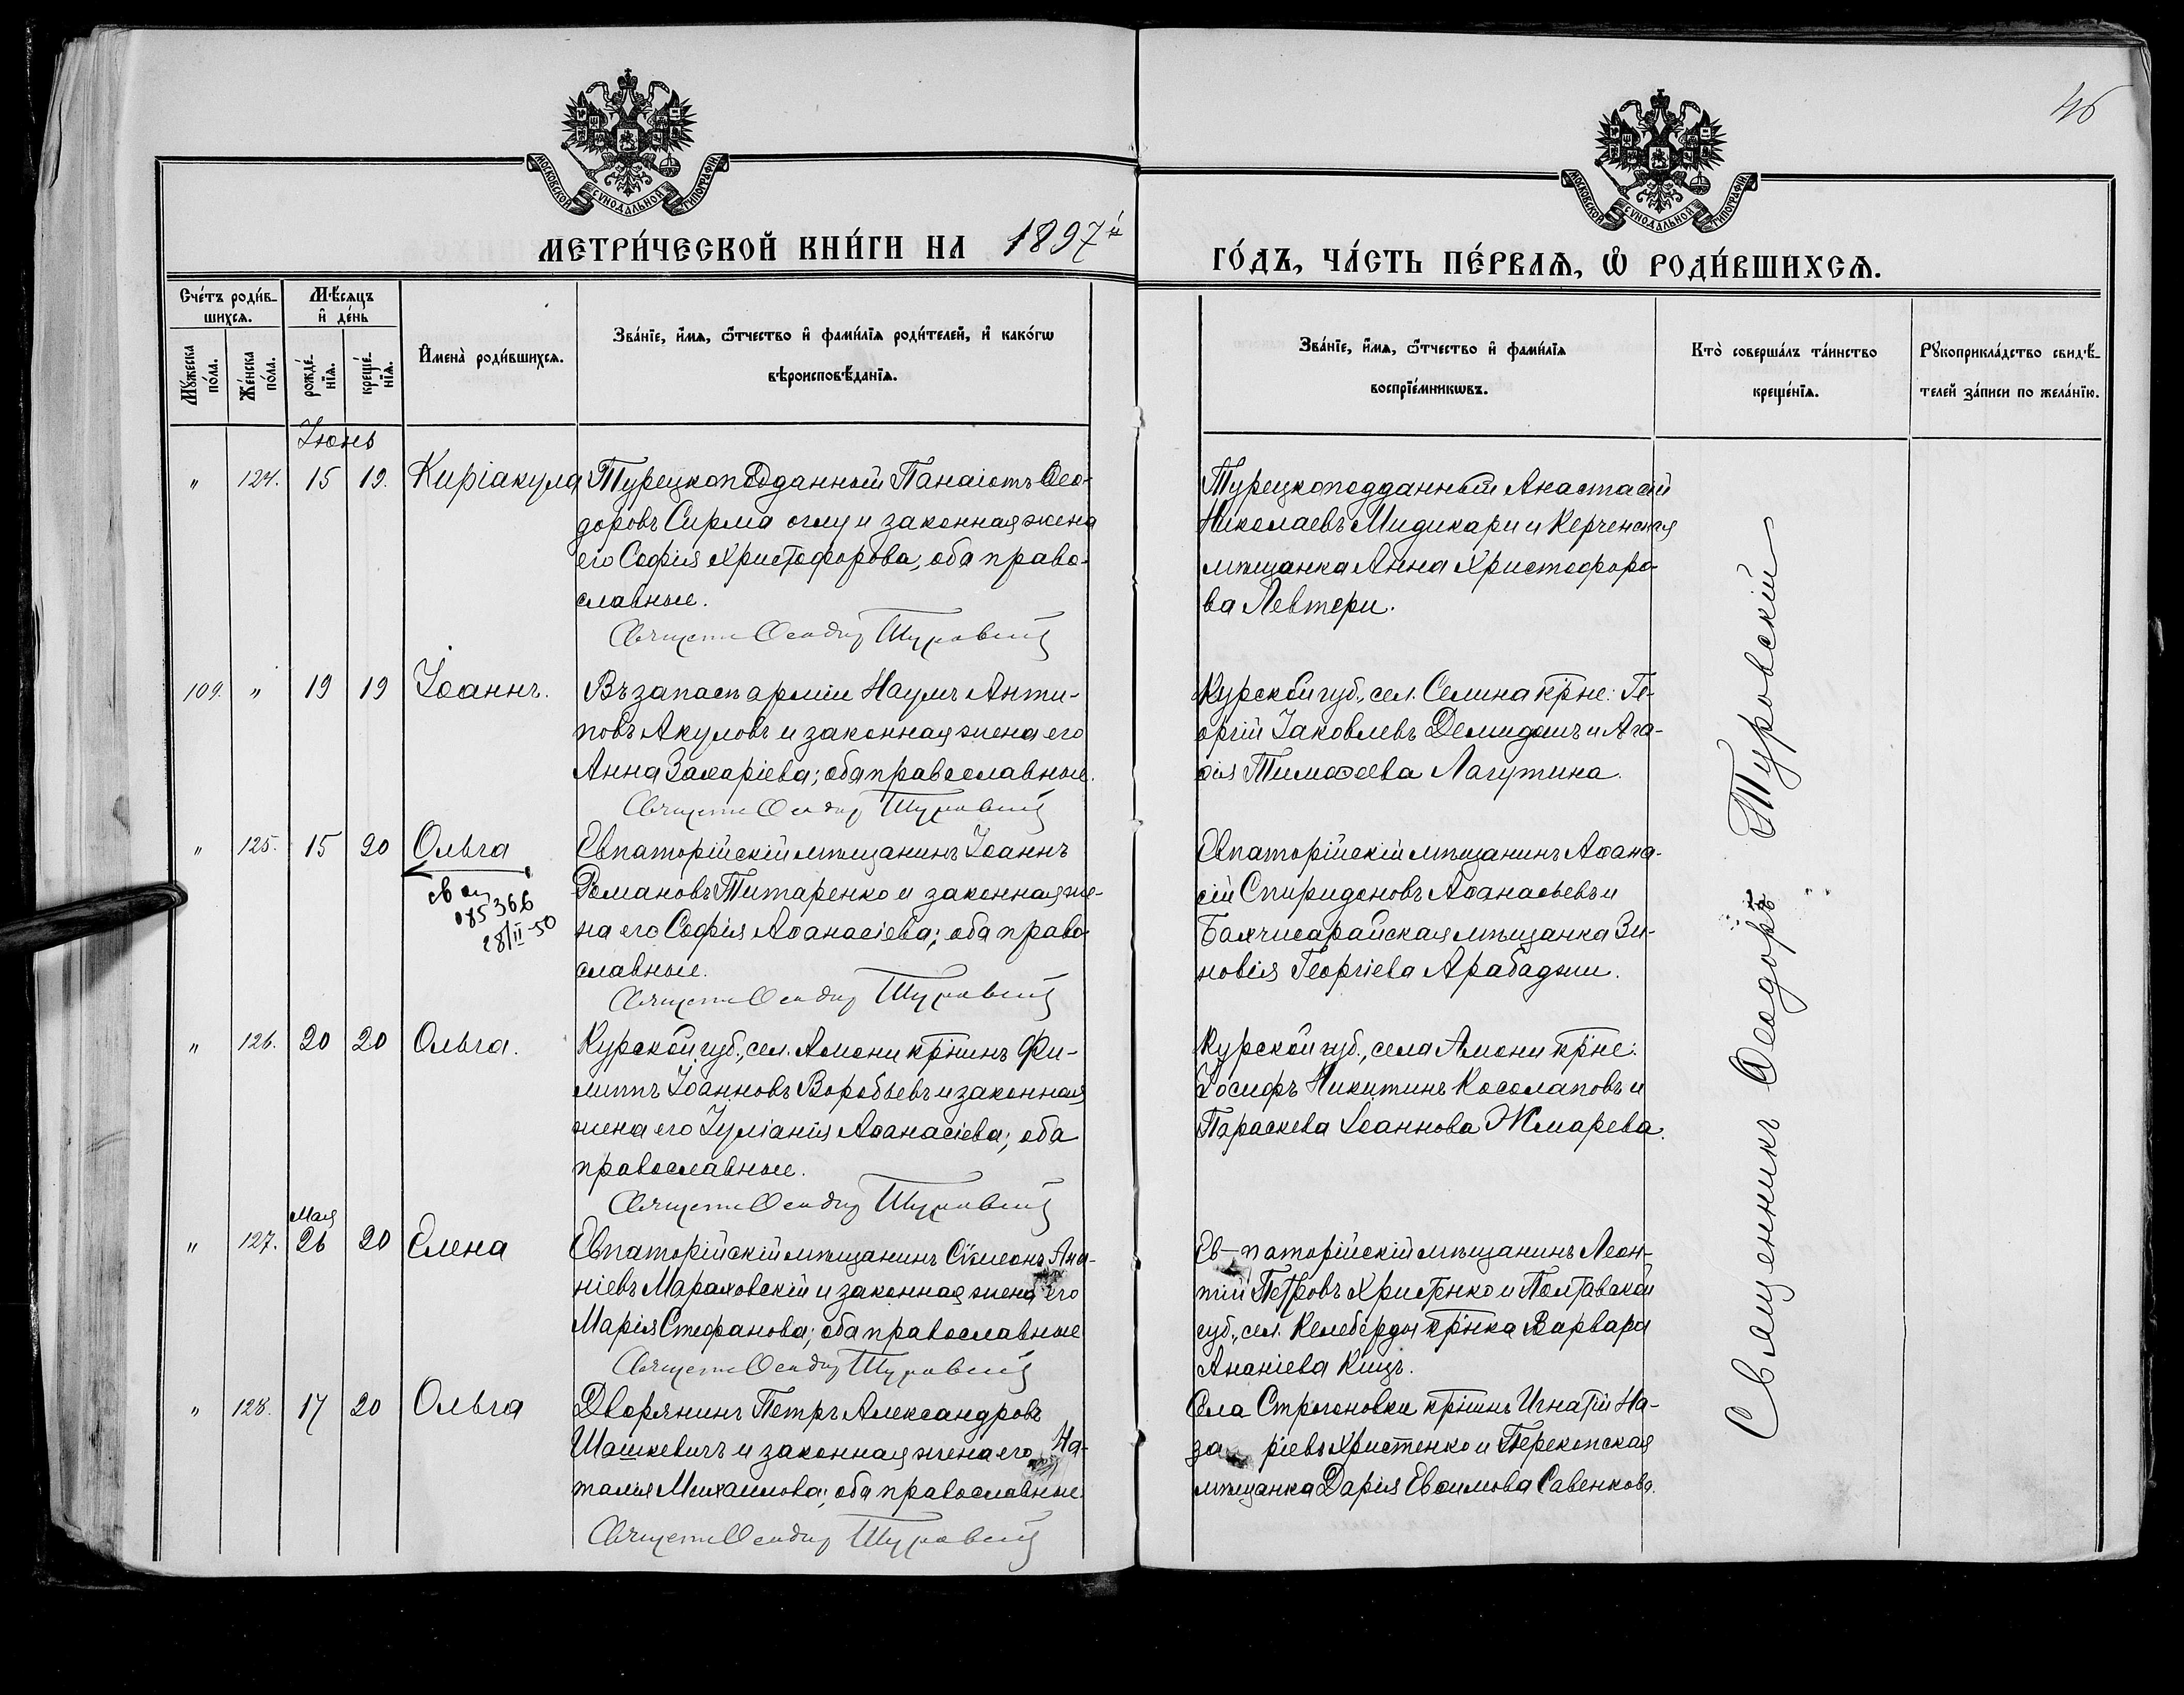 46
МОСКОВСКОЙ СѴНОДАЛЬНОЙ ТИПОГРАФІИ
МОСКОВСКОЙ СѴНОДАЛЬНОЙ ТИПОГРАФІИ
МЕТРИ́ЧЕСКОЙ КНИ́ГИ НА 1897й
ГО́ДЪ, ЧА́СТЬ ПЕ́РВАѦ, Ѡ РОДИ́ВШИХСѦ.
Сче́тъ роди́в-
шихсѧ.
Мѣ́сѧцъ
и҆ де́нь
Мꙋ́жеска
по́ла.
Же́нска
по́ла.
рожде́-
нїѧ.
креще́-
нїѧ.
И҆мена̀ роди́вшихсѧ.
Зва́нїе, и҆́мѧ, ѻ҆́тчество и҆ фами́лїѧ роди́телей, и҆ како́гѡ
вѣроисповѣ́данїѧ.
Зва́нїе, и҆́мѧ, ѻ҆́тчество и҆ фами́лїѧ
воспрїе́мникѡвъ.
Кто̀ соверша́лъ та́инство
креще́нїѧ.
Рꙋкоприкла́дство свидѣ́-
телей за́писи по жела́нїю.
Іюнь
" 124. 15 19. Киріакула
Турецкоподданный Панаіотъ Ѳео-
доровъ Сирма оглу и законная жена
его Софія Христофорова; оба право-
славные.
Священ Ѳеодор Туровскій
Турецкоподданный Анастасій
Николаевъ Мидикари и Керченская
мѣщанка Анна Христофоро-
ва Левтери.
109. " 19 19 Іоаннъ.
Въ запасѣ арміи Наумъ Анти-
повъ Акуловъ и законная жена его
Анна Захаріева; оба православные.
Священ Ѳеодор Туровскій
Курской губ., сел. Селина кр̃не: Ге-
оргій Іаковлевъ Демидовъ и Ага-
ѳія Тимоѳеева Лагутина.
" 125. 15 20 Ольга
св
085366
28/II-50
Евпаторійскій мѣщанинъ Іоаннъ
Романовъ Титаренко и законная же-
на его Софія Аѳанасіева; оба право-
славные.
Священ Ѳеодор Туровскій
Евпаторійскій мѣщанинъ Аѳана-
сій Спиридоновъ Аѳанасьевъ и
Бахчисарайская мѣщанка Зи-
новія Георгіева Арабаджи.
" 126. 20 20 Ольга.
Курской губ., сел. Амони кр̃нинъ Фи-
липпъ Іоанновъ Воробьевъ и законная
жена его Іуліанія Аѳанасіева; оба
православные.
Священ Ѳеодор Туровскій
Курской губ., села Амони кр̃не:
Іосифъ Никитинъ Косолаповъ и
Параскева Іоаннова Жмарева.
Мая
" 127. 26 20 Елена
Евпаторійскій мѣщанинъ Сѵмеонъ Ана-
ніевъ Мараховскій и законная жена его
Марія Стефанова; оба православные
Священ Ѳеодор Туровскій
Ев-паторійскій мѣщанинъ Леон-
тій Петровъ Христенко и Полтавской
губ., сел. Келеберды кр̃нка Варвара
Ананіева Кищъ.
" 128. 17 20 Ольга
Дворянинъ Петръ Александровъ
Шашкевичъ и законная жена его На-
талія Михаилова; оба православные.
Священ Ѳеодор Туровскій
Села Строгоновки кр̃нинъ Игнатій На-
за ріевъ Христенко и Перекопская
мѣщанка Дарія Евѳимова Савенкова.
Священникъ Ѳеодоръ Туровскій